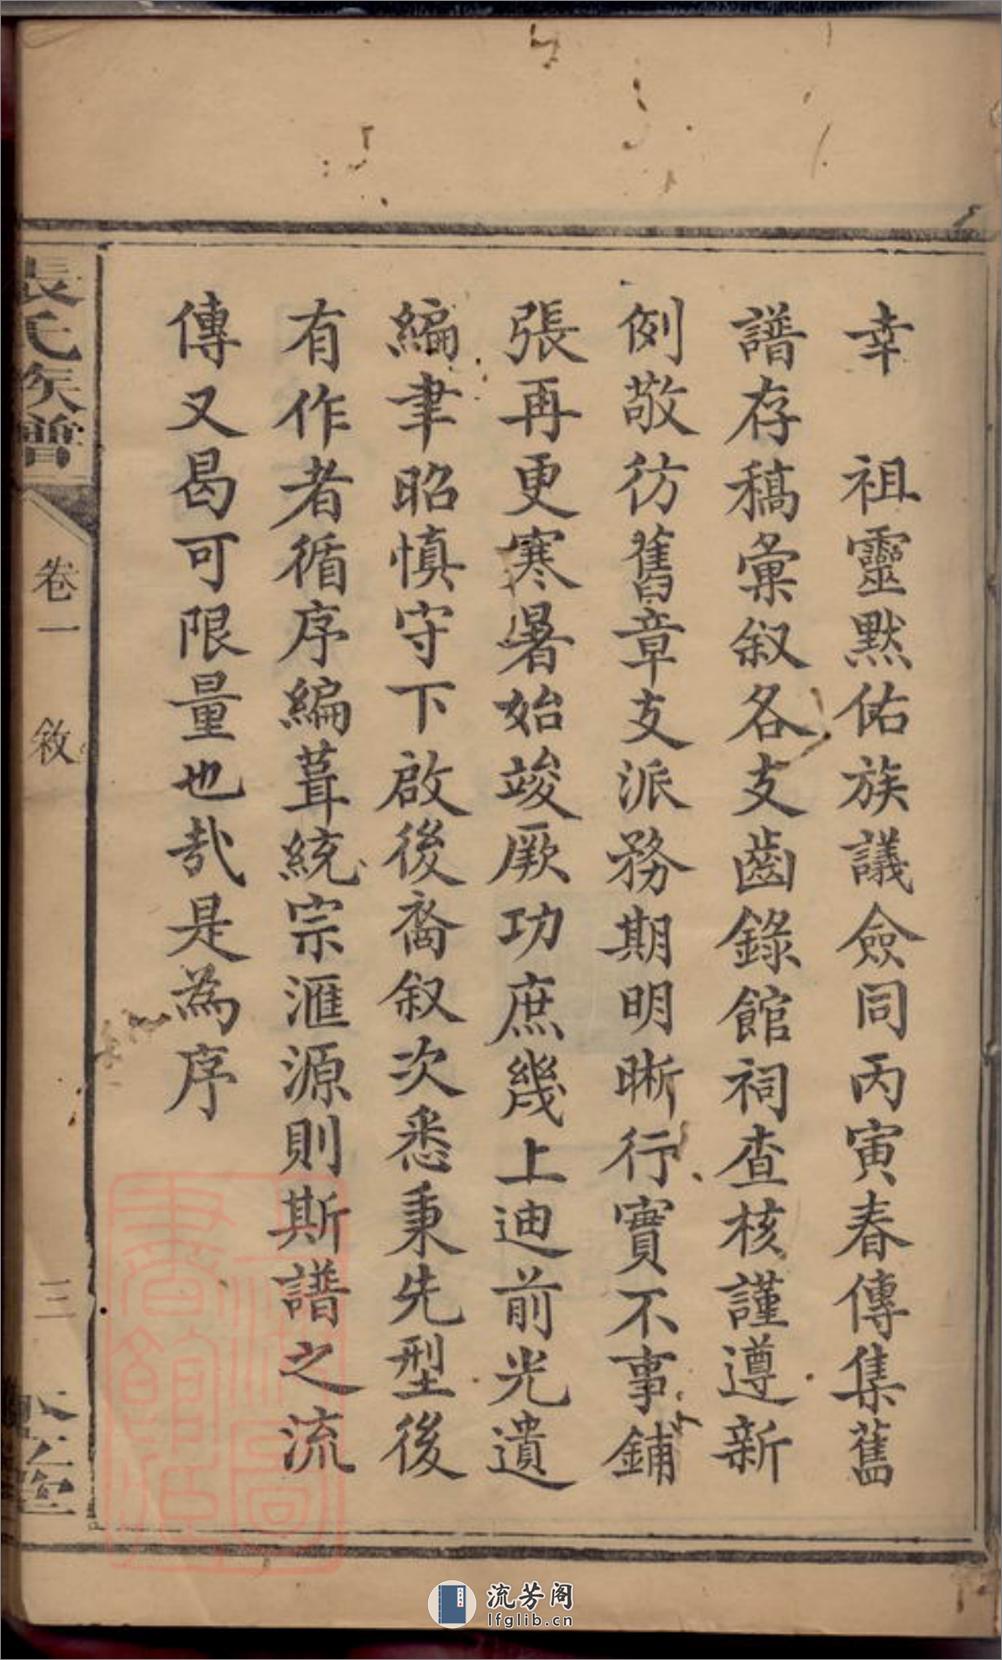 幸　祖靈默佑族議僉同丙寅春傳集舊
譜存稿彙叙各支齒錄館祠查核謹遵新
例敬仿舊章支派務期明晰行實不事鋪
張再更寒暑始竣厥功庶幾上迪前光遺
編聿昭慎守下啟後裔叙次悉秉先型後
有作者循序編葺統宗滙源則斯譜之流
傳又曷可限量也哉是為序
張氏族譜
卷一
敘
三
流芳阁
lfglib.cn